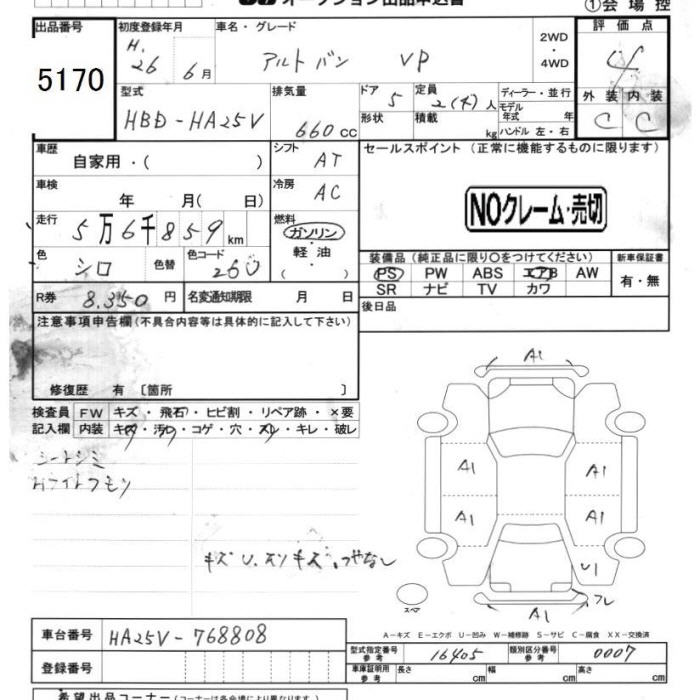 オークション出品申込書
①会場控
出品番号
5170
初度登録年月
H.26 6月
車名・グレード
アルトバン VP
2WD
・
4WD
評価点
4
外装 内装
C C
型式
HBD-HA25V
排気量
660cc
ドア 5
形状
定員 2(4)人
積載 kg
ディーラー・並行
モデル年式 年
ハンドル 左・右
車歴
自家用・( )
シフト AT
セールスポイント (正常に機能するものに限ります)
NOクレーム・売切
車検
年 月( 日)
冷房 AC
走行
5万6千859km
燃料
ガソリン
軽油
( )
色 シロ
色替
色コード 26U
装備品 (純正品に限り○をつけてください)
新車保証書
PS PW ABS エアB AW
SR ナビ TV カワ
有・無
R券 8.350円
名変通知期限 月 日
後日品
注意事項申告欄(不具合内容等は具体的に記入して下さい)
修復歴 有 〔箇所 〕
検査員
記入欄
FW キズ・飛石・ヒビ割・リペア跡・×要
内装 キズ・汚レ・コゲ・穴・スレ・キレ・破レ
シートシミ
Hライトクモリ
キズ U.スリキズ.つやなし
A1
A1 A1
A1 A1
U1
フレ
A1
スペア
A-キズ E-エクボ U-凹み W-補修跡 S-サビ C-腐食 XX-交換済
車台番号 HA25V-768808
登録番号
型式指定番号
参考
16405
類別区分番号
参考
0007
車庫証明用
参考
長さ cm 幅 cm 高さ cm
希望出品コーナー(コーナーは各会場により異なります)